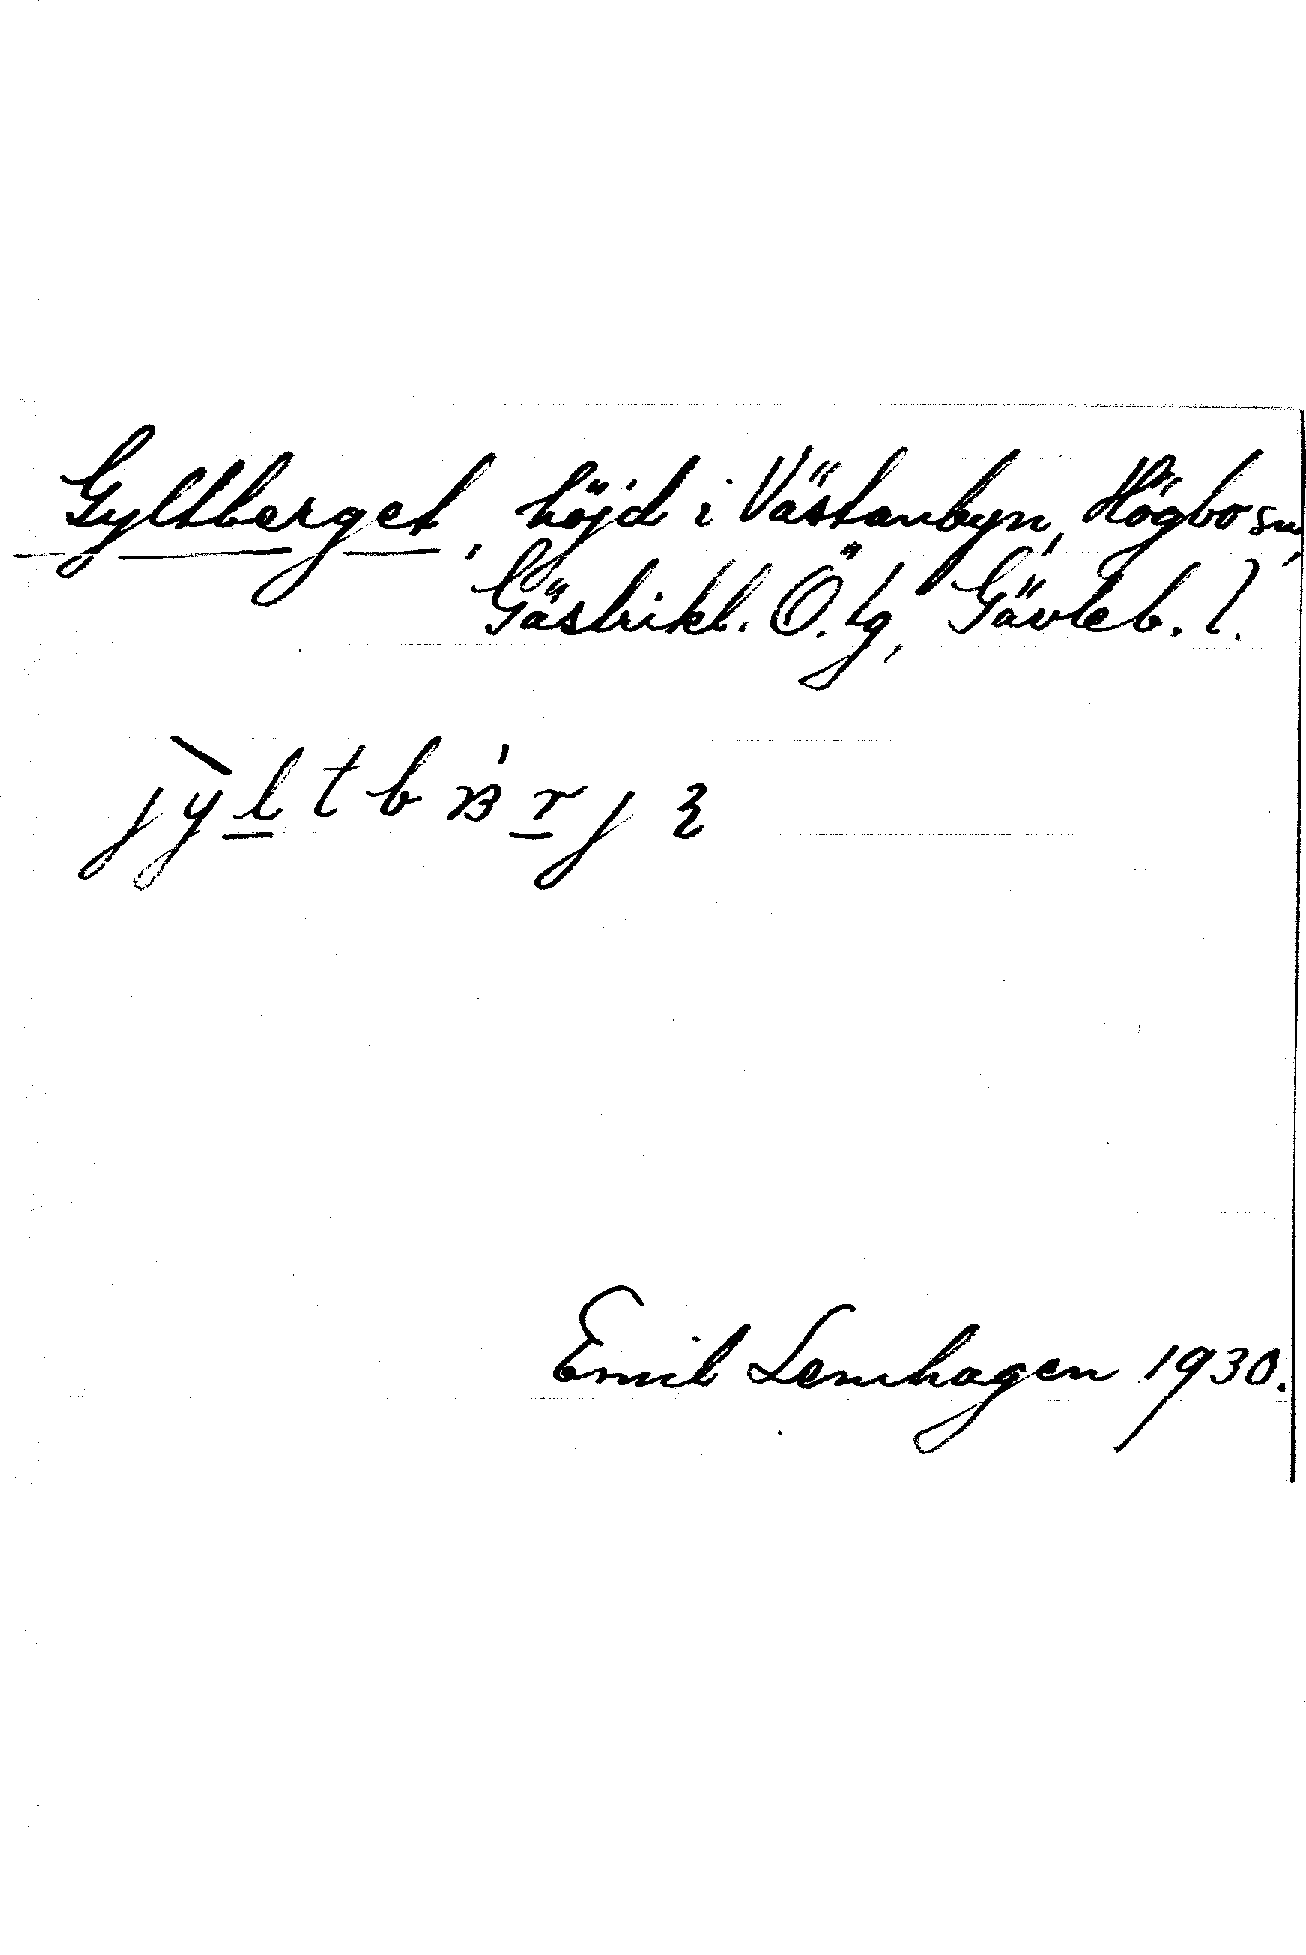 Gyltberget, höjd i Västanbyn, Högbo sn,
Gästrikl. Ö. tg, Gävleb. l.
Emil Lenhagen 1930.